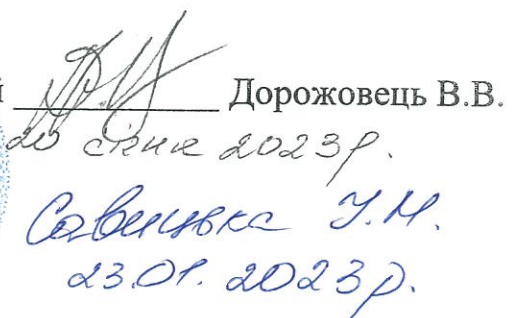 й ____________ Дорожовець В.В.
20 січня 2023р.
Савицька У.М.
23.01.2023р.